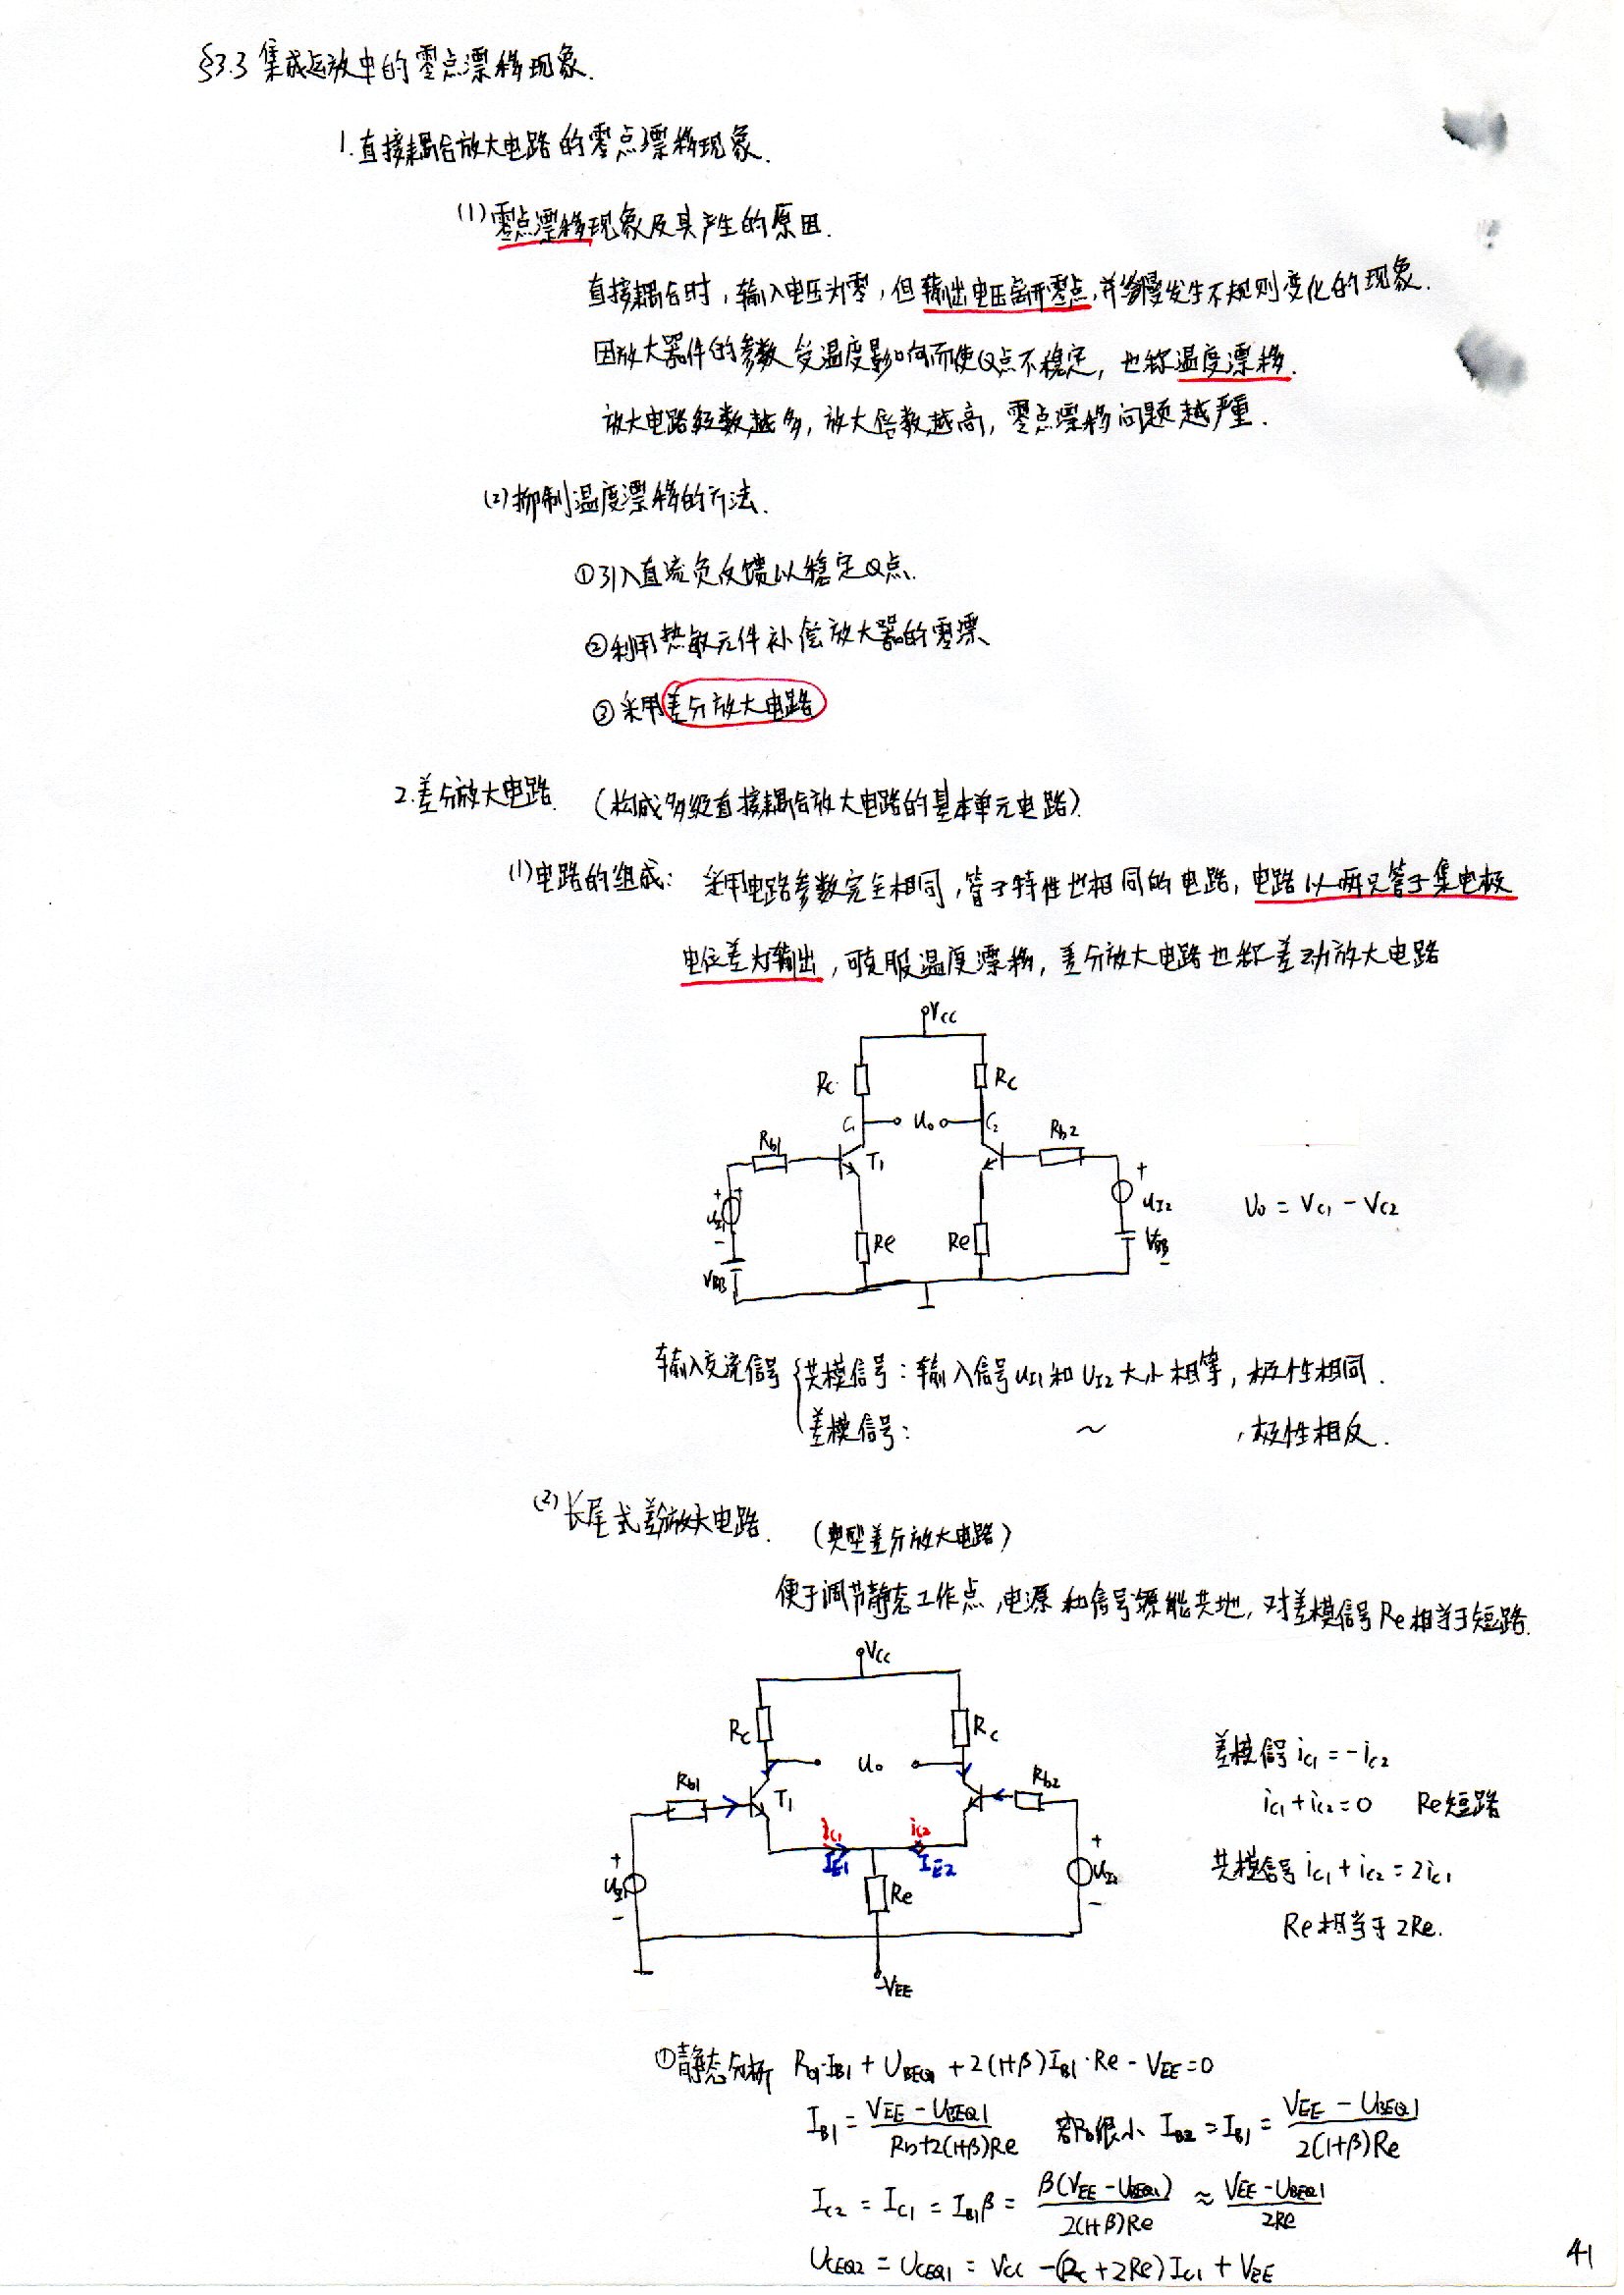 §3.3 集成运放中的零点漂移现象.
1.直接耦合放大电路的零点漂移现象.
(1)零点漂移现象及其产生的原因.
直接耦合时,输入电压为零,但输出电压离开零点,并缓慢发生不规则变化的现象.
因放大器件的参数受温度影响而使Q点不稳定,也称温度漂移.
放大电路级数越多,放大倍数越高,零点漂移问题越严重.
(2)抑制温度漂移的方法.
①引入直流负反馈以稳定Q点.
②利用热敏元件补偿放大器的零漂
③采用差分放大电路
2.差分放大电路. (构成多级直接耦合放大电路的基本单元电路).
(1)电路的组成: 采用电路参数完全相同,管子特性也相同的电路,电路以两只管子集电极
电位差为输出,可克服温度漂移,差分放大电路也称差动放大电路
Vcc
Rc Rc
C1 Uo C2
Rb1 T1 Rb2
uI1 uI2 Uo = Vc1 - Vc2
Re Re
VBB VBB
输入交流信号 {共模信号: 输入信号uI1和uI2大小相等,极性相同.
差模信号: ~ ,极性相反.
(2)长尾式差分放大电路. (典型差分放大电路)
便于调节静态工作点,电源和信号源能共地,对差模信号Re相当于短路.
Vcc
Rc Rc
Uo
Rb1 T1 Rb2
ic1 ic2
IE1 IE2
uI1 Re uI2
-VEE
差模信号 ic1 = -ic2
ic1 + ic2 = 0 Re短路
共模信号 ic1 + ic2 = 2ic1
Re相当于2Re.
①静态分析 Rb1·IB1 + UBEQ1 + 2(1+β)IB1·Re - VEE = 0
IB1 = (VEE - UBEQ1)/(Rb+2(1+β)Re) 若Rb很小 IB2 = IB1 = (VEE - UBEQ1)/(2(1+β)Re)
IC2 = IC1 = IB1β = β(VEE - UBEQ1)/(2(1+β)Re) ≈ (VEE - UBEQ1)/(2Re)
UCEQ2 = UCEQ1 = VCC - (Rc + 2Re)IC1 + VEE
41